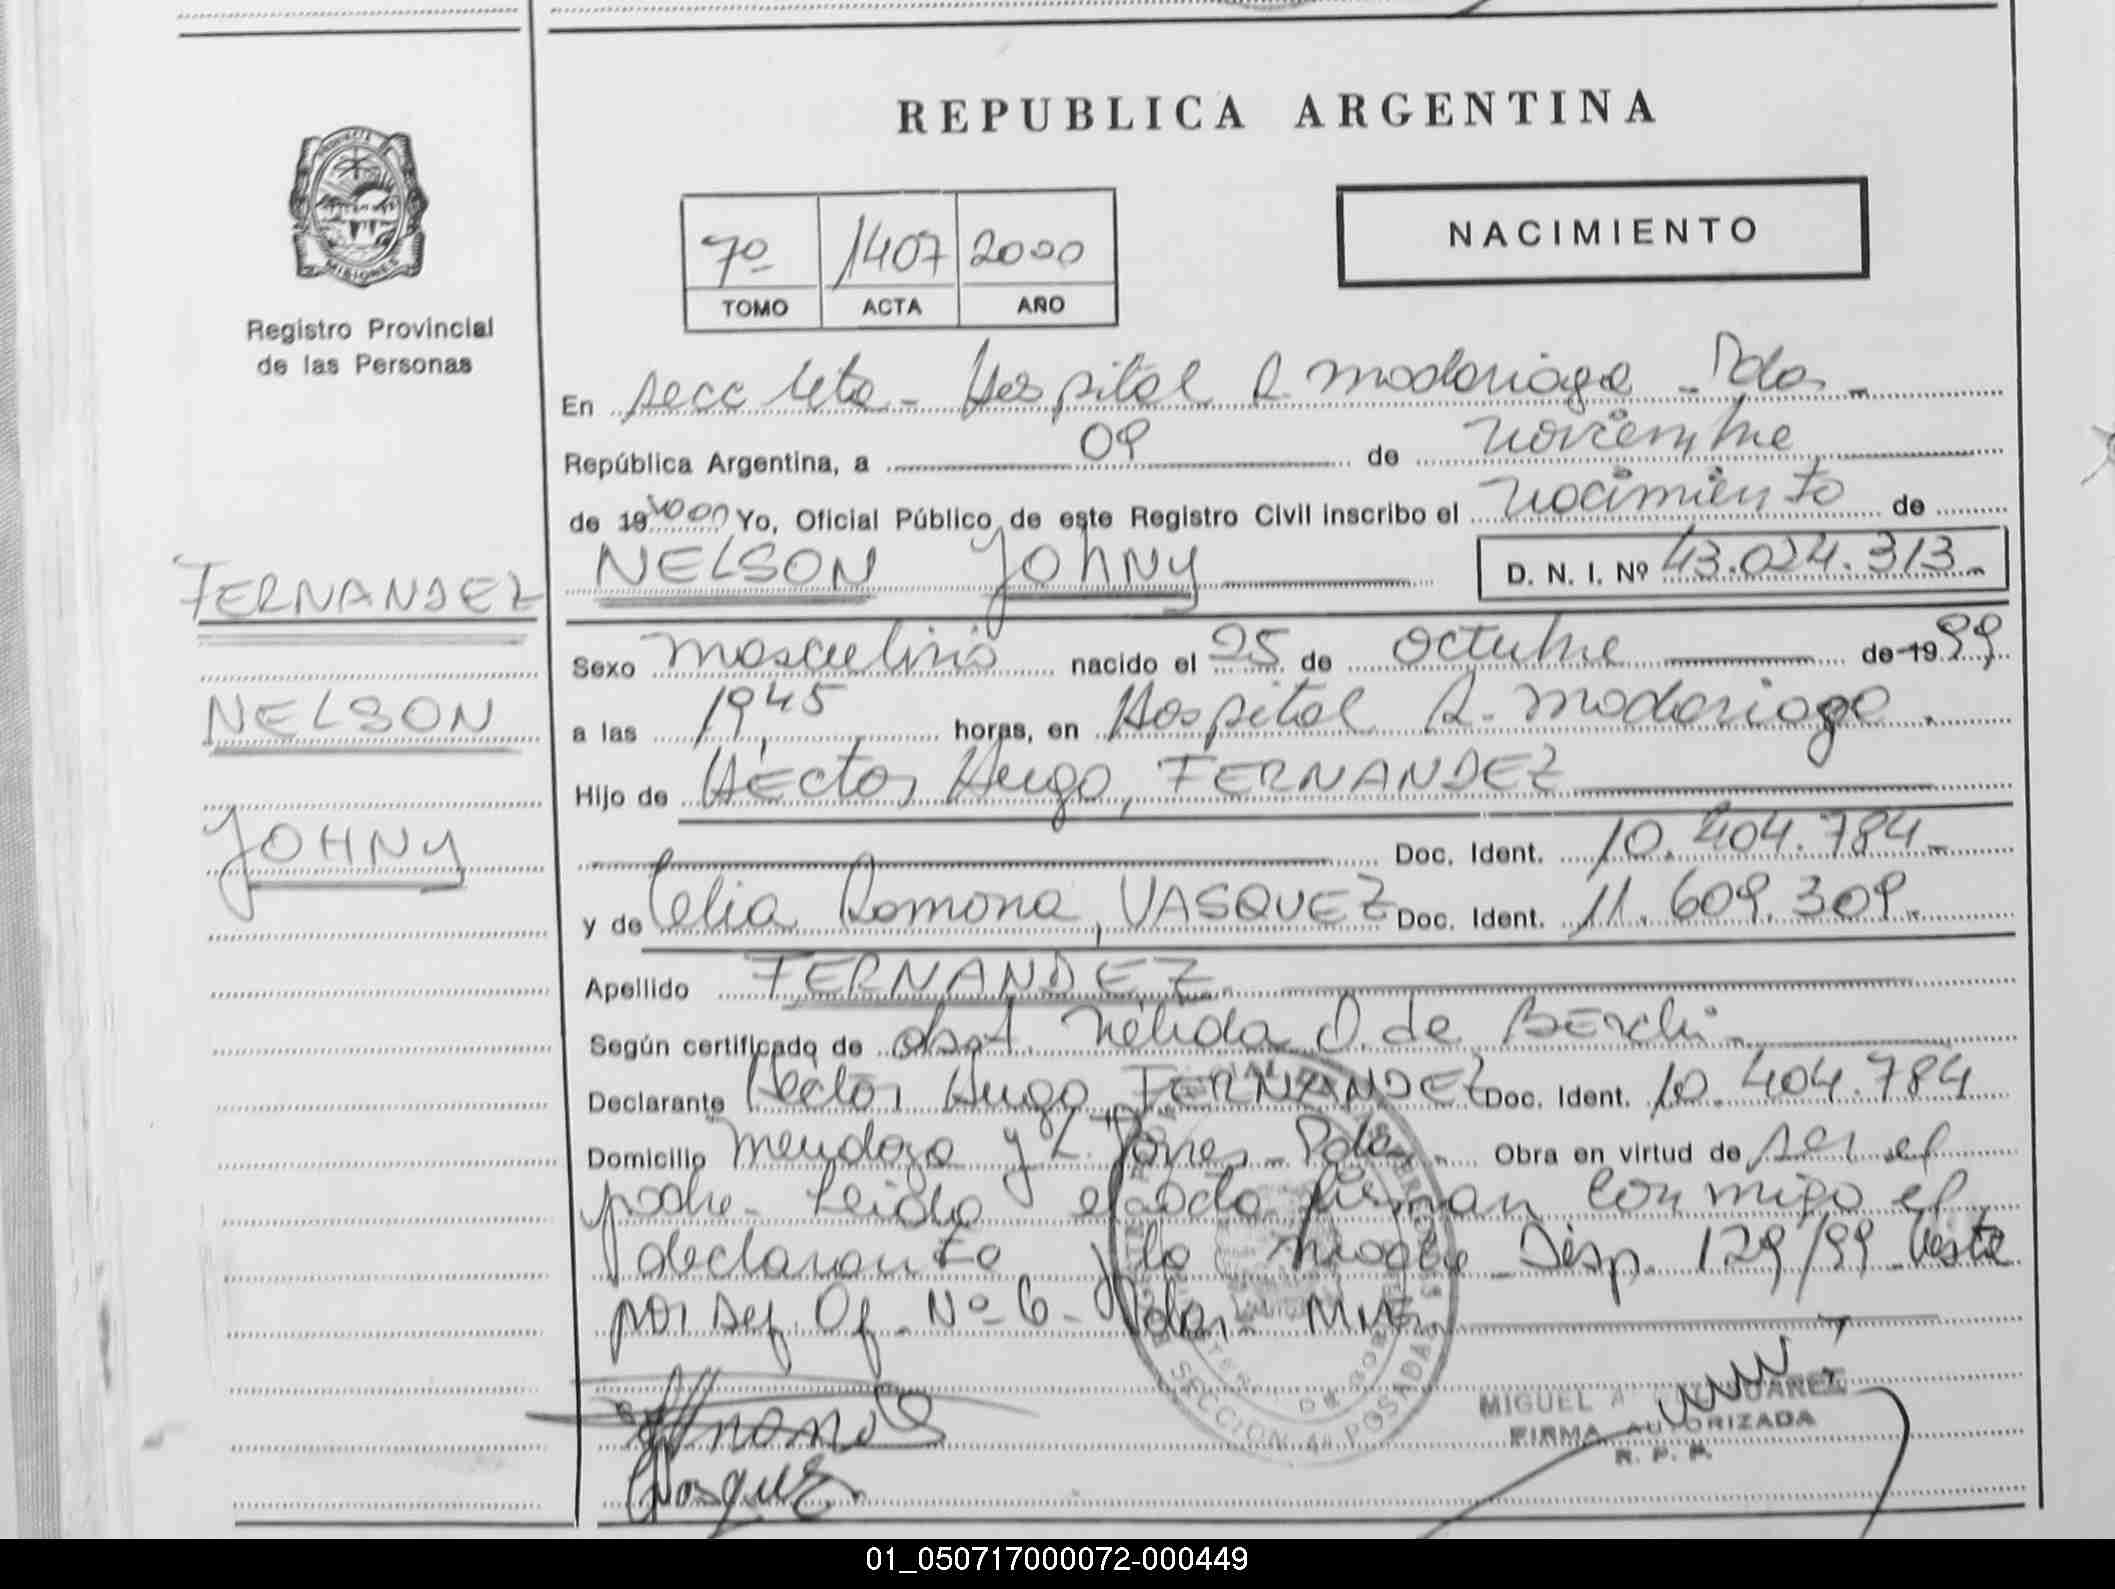 REPUBLICA ARGENTINA
MISIONES
Registro Provincial
de las Personas
7º 1407 2000
TOMO ACTA AÑO
NACIMIENTO
En Secc 4ta - Hospital R. Madariaga - Pdas -
República Argentina, a 09 de noviembre
de 19 2000 Yo, Oficial Público de este Registro Civil inscribo el nacimiento de
NELSON JOHNY D. N. I. Nº 43.024.313.-
FERNANDEZ
NELSON
JOHNY
Sexo masculino nacido el 25 de octubre de 1999
a las 19,45 horas, en Hospital R. Madariaga.
Hijo de Héctor Hugo, FERNANDEZ
Doc. Ident. 10.404.784.-
y de Celia Ramona, VASQUEZ Doc. Ident. 11.609.309.-
Apellido FERNANDEZ
Según certificado de obst. Nélida O. de
Declarante Héctor Hugo FERNANDEZ Doc. Ident. 10.404.784
Domicilio Mendoza y L. Torres - Pdas. Obra en virtud de ser el
padre - Leída el acta firman conmigo el
declarante y la madre - Disp. 129/99 Vista
por Def. Of. Nº 6 - Pdas. - Mnes.
SECCION 4a POSADAS
Vasquez
MIGUEL A
FIRMA AUTORIZADA
R. P. P.
01_050717000072-000449